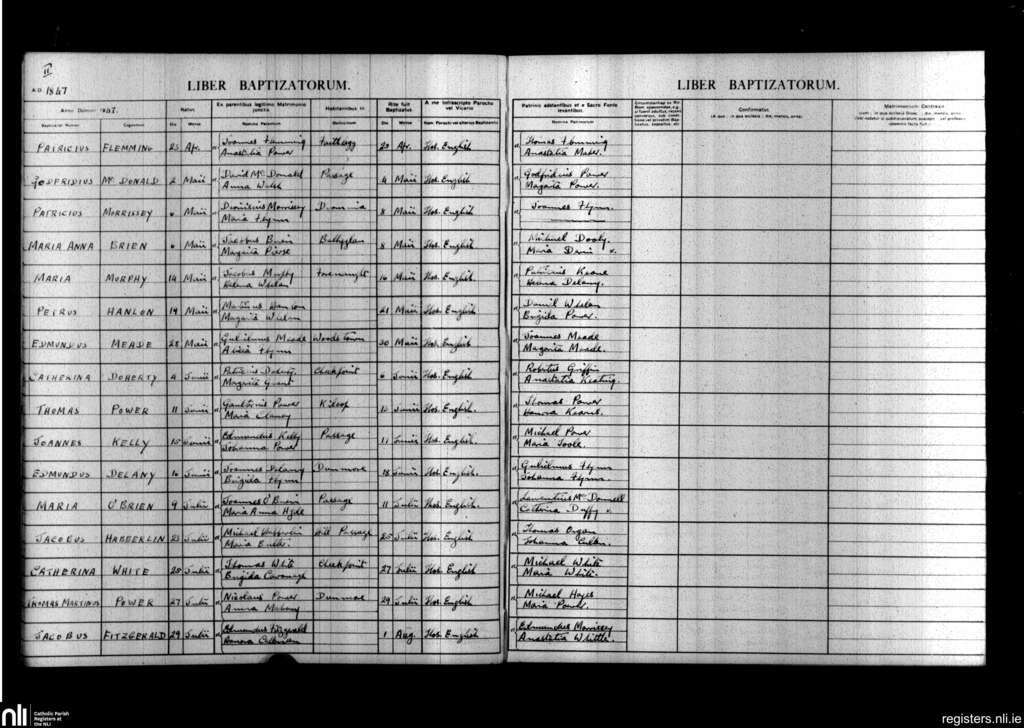 II
A.D. 1847
LIBER BAPTIZATORUM.
LIBER BAPTIZATORUM.
Anno Domini 1847.
Natus
Ex parentibus legitimo Matrimonio junctis
Habitantibus in
Rite fuit Baptizatus
A me infrascripto Parocho vel Vicario
Patrinis adstantibus et a Sacro Fonte levantibus.
Confirmatus
Matrimonium Contraxit
Baptizati Nomen
Cognomen
Die
Mense
Nomina Parentum
Die
Mense
Nomina Patrinorum
PATRICIUS FLEMMING 25 Apr. Joannes Flemming Faithlegg 29 Apr. Thos. English Thomas Flemming
Anastatia Power Anastatia Maher.
GODFRIDIUS McDONALD 2 Maii David McDonald Passage 4 Maii Thos. English Godfridius Power
Anna Welsh Margarita Power.
PATRICIUS MORRISSEY 6 Maii Dionisius Morrissey 8 Maii Thos. English Joannes Flynn.
Maria Flynn
MARIA ANNA BRIEN 6 Maii Jacobus Brien Ballyglan 8 Maii Thos. English Michael Dooly.
Margarita Pierse Maria
MARIA MURPHY 14 Maii Jacobus Murphy 16 Maii Thos. English Patricius Keane
Helena Whelan Helena Delany.
PETRUS HANLON 19 Maii Hanlon 21 Maii Thos. English Daniil Whelan
Margarita Brigida Power.
EDMUNDUS MEADE 28 Maii Gulielmus Meade Woodstown 30 Maii Thos. English Joannes Meade
Alicia Flynn Margarita Meade.
CATHERINA DOHERTY 4 Junii Patricius Doherty Cheekpoint 6 Junii Thos. English Robertus Griffin
Margarita Grant Anastatia Keating.
THOMAS POWER 11 Junii Gualterius Power Kilcop Junii Thos. English. Thomas Power
Maria Clancy Honora
JOANNES KELLY 10 Junii Edmundus Kelly Passage 11 Junii Thos. English. Michael Power
Johanna Power Maria Toole.
EDMUNDUS DELANY 16 Junii Joannes Delany Dunmore 18 Junii Thos. English. Gulielmus Flynn
Brigida Flynn Johanna Flynn.
MARIA O'BRIEN 9 Julii Joannes O'Brien Passage 11 Julii Thos. English. Laurentius McDonnell
Maria Anna Hyde Catherina Duffy
JACOBUS HABBERLIN 23 Julii Michael Habberlin Hill Passage 25 Julii Thos. English Thomas
Maria Butler. Johanna Cullen.
CATHERINA WHITE 25 Julii Thomas White Cheekpoint 27 Julii Thos. English Michael White
Brigida Cavanagh Maria White.
THOMAS MARTINUS POWER 27 Julii Nicolaus Power Dunmore 29 Julii Thos. English Michael Hayes
Anna Mahony Maria Power.
JACOBUS FITZGERALD 29 Julii Edmundus Fitzgerald 1 Aug. Thos. English Edmundus Morrissey
Honora Anastatia Whittle.
nli
Catholic Parish
Registers at
the NLI
registers.nli.ie